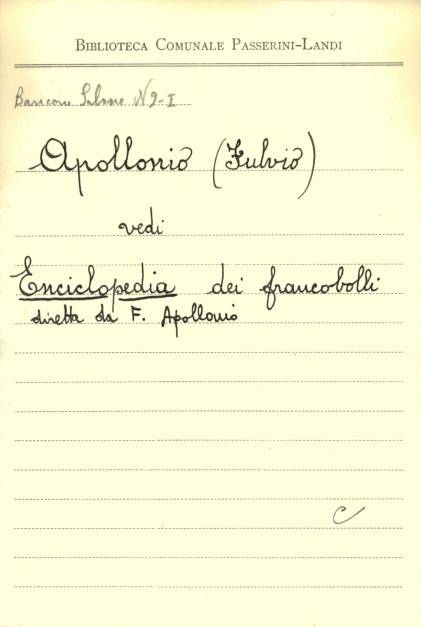 BIBLIOTECA COMUNALE PASSERINI-LANDI
N9-I
Apollonio (Fulvio)
vedi
Enciclopedia dei francobolli
diretta da F. Apollonio
C